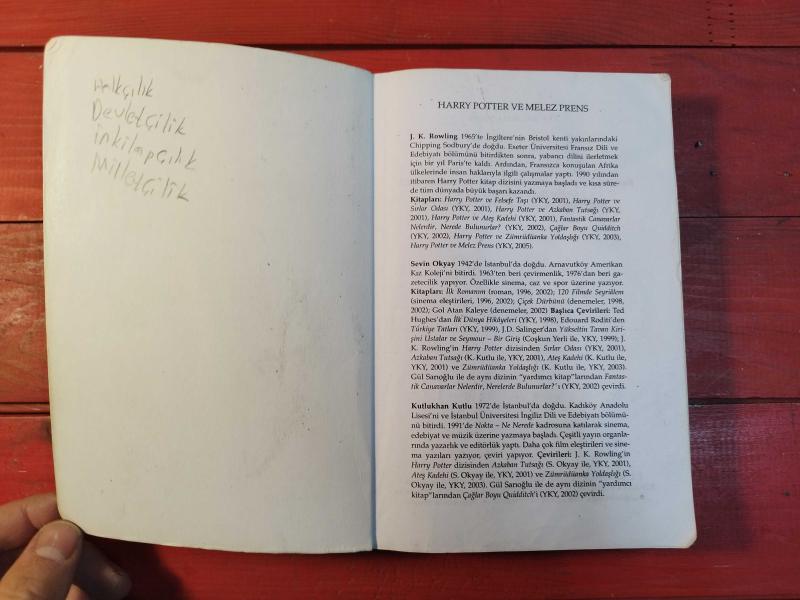 Halkçılık
Devletçilik
inkilapçılık
Milletçilik
HARRY POTTER VE MELEZ PRENS
J. K. Rowling 1965'te İngiltere'nin Bristol kenti yakınlarındaki
Chipping Sodbury'de doğdu. Exeter Üniversitesi Fransız Dili ve
Edebiyatı bölümünü bitirdikten sonra, yabancı dilini ilerletmek
için bir yıl Paris'te kaldı. Ardından, Fransızca konuşulan Afrika
ülkelerinde insan haklarıyla ilgili çalışmalar yaptı. 1990 yılından
itibaren Harry Potter kitap dizisini yazmaya başladı ve kısa süre-
de tüm dünyada büyük başarı kazandı.
Kitapları: Harry Potter ve Felsefe Taşı (YKY, 2001), Harry Potter ve
Sırlar Odası (YKY, 2001), Harry Potter ve Azkaban Tutsağı (YKY,
2001), Harry Potter ve Ateş Kadehi (YKY, 2001), Fantastik Canavarlar
Nelerdir, Nerede Bulunurlar? (YKY, 2002), Çağlar Boyu Quidditch
(YKY, 2002), Harry Potter ve Zümrüdüanka Yoldaşlığı (YKY, 2003),
Harry Potter ve Melez Prens (YKY, 2005).
Sevin Okyay 1942'de İstanbul'da doğdu. Arnavutköy Amerikan
Kız Koleji'ni bitirdi. 1963'ten beri çevirmenlik, 1976'dan beri ga-
zetecilik yapıyor. Özellikle sinema, caz ve spor üzerine yazıyor.
Kitapları: İlk Romanım (roman, 1996, 2002); 120 Filmde Seyriâlem
(sinema eleştirileri, 1996, 2002); Çiçek Dürbünü (denemeler, 1998,
2002); Gol Atan Kaleye (denemeler, 2002) Başlıca Çevirileri: Ted
Hughes'dan İlk Dünya Hikâyeleri (YKY, 1998), Edouard Roditi'den
Türkiye Tatları (YKY, 1999), J.D. Salinger'dan Yükseltin Tavan Kiri-
şini Ustalar ve Seymour – Bir Giriş (Coşkun Yerli ile, YKY, 1999); J.
K. Rowling'in Harry Potter dizisinden Sırlar Odası (YKY, 2001),
Azkaban Tutsağı (K. Kutlu ile, YKY, 2001), Ateş Kadehi (K. Kutlu ile,
YKY, 2001) ve Zümrüdüanka Yoldaşlığı (K. Kutlu ile, YKY, 2003).
Gül Sarıoğlu ile de aynı dizinin "yardımcı kitap"larından Fantas-
tik Canavarlar Nelerdir, Nerelerde Bulunurlar?'ı (YKY, 2002) çevirdi.
Kutlukhan Kutlu 1972'de İstanbul'da doğdu. Kadıköy Anadolu
Lisesi'ni ve İstanbul Üniversitesi İngiliz Dili ve Edebiyatı bölümü-
nü bitirdi. 1991'de Nokta – Ne Nerede kadrosuna katılarak sinema,
edebiyat ve müzik üzerine yazmaya başladı. Çeşitli yayın organla-
rında yazarlık ve editörlük yaptı. Daha çok film eleştirileri ve sine-
ma yazıları yazıyor, çeviri yapıyor. Çevirileri: J. K. Rowling'in
Harry Potter dizisinden Azkaban Tutsağı (S. Okyay ile, YKY, 2001),
Ateş Kadehi (S. Okyay ile, YKY, 2001) ve Zümrüdüanka Yoldaşlığı (S.
Okyay ile, YKY, 2003). Gül Sarıoğlu ile de aynı dizinin "yardımcı
kitap"larından Çağlar Boyu Quidditch'i (YKY, 2002) çevirdi.